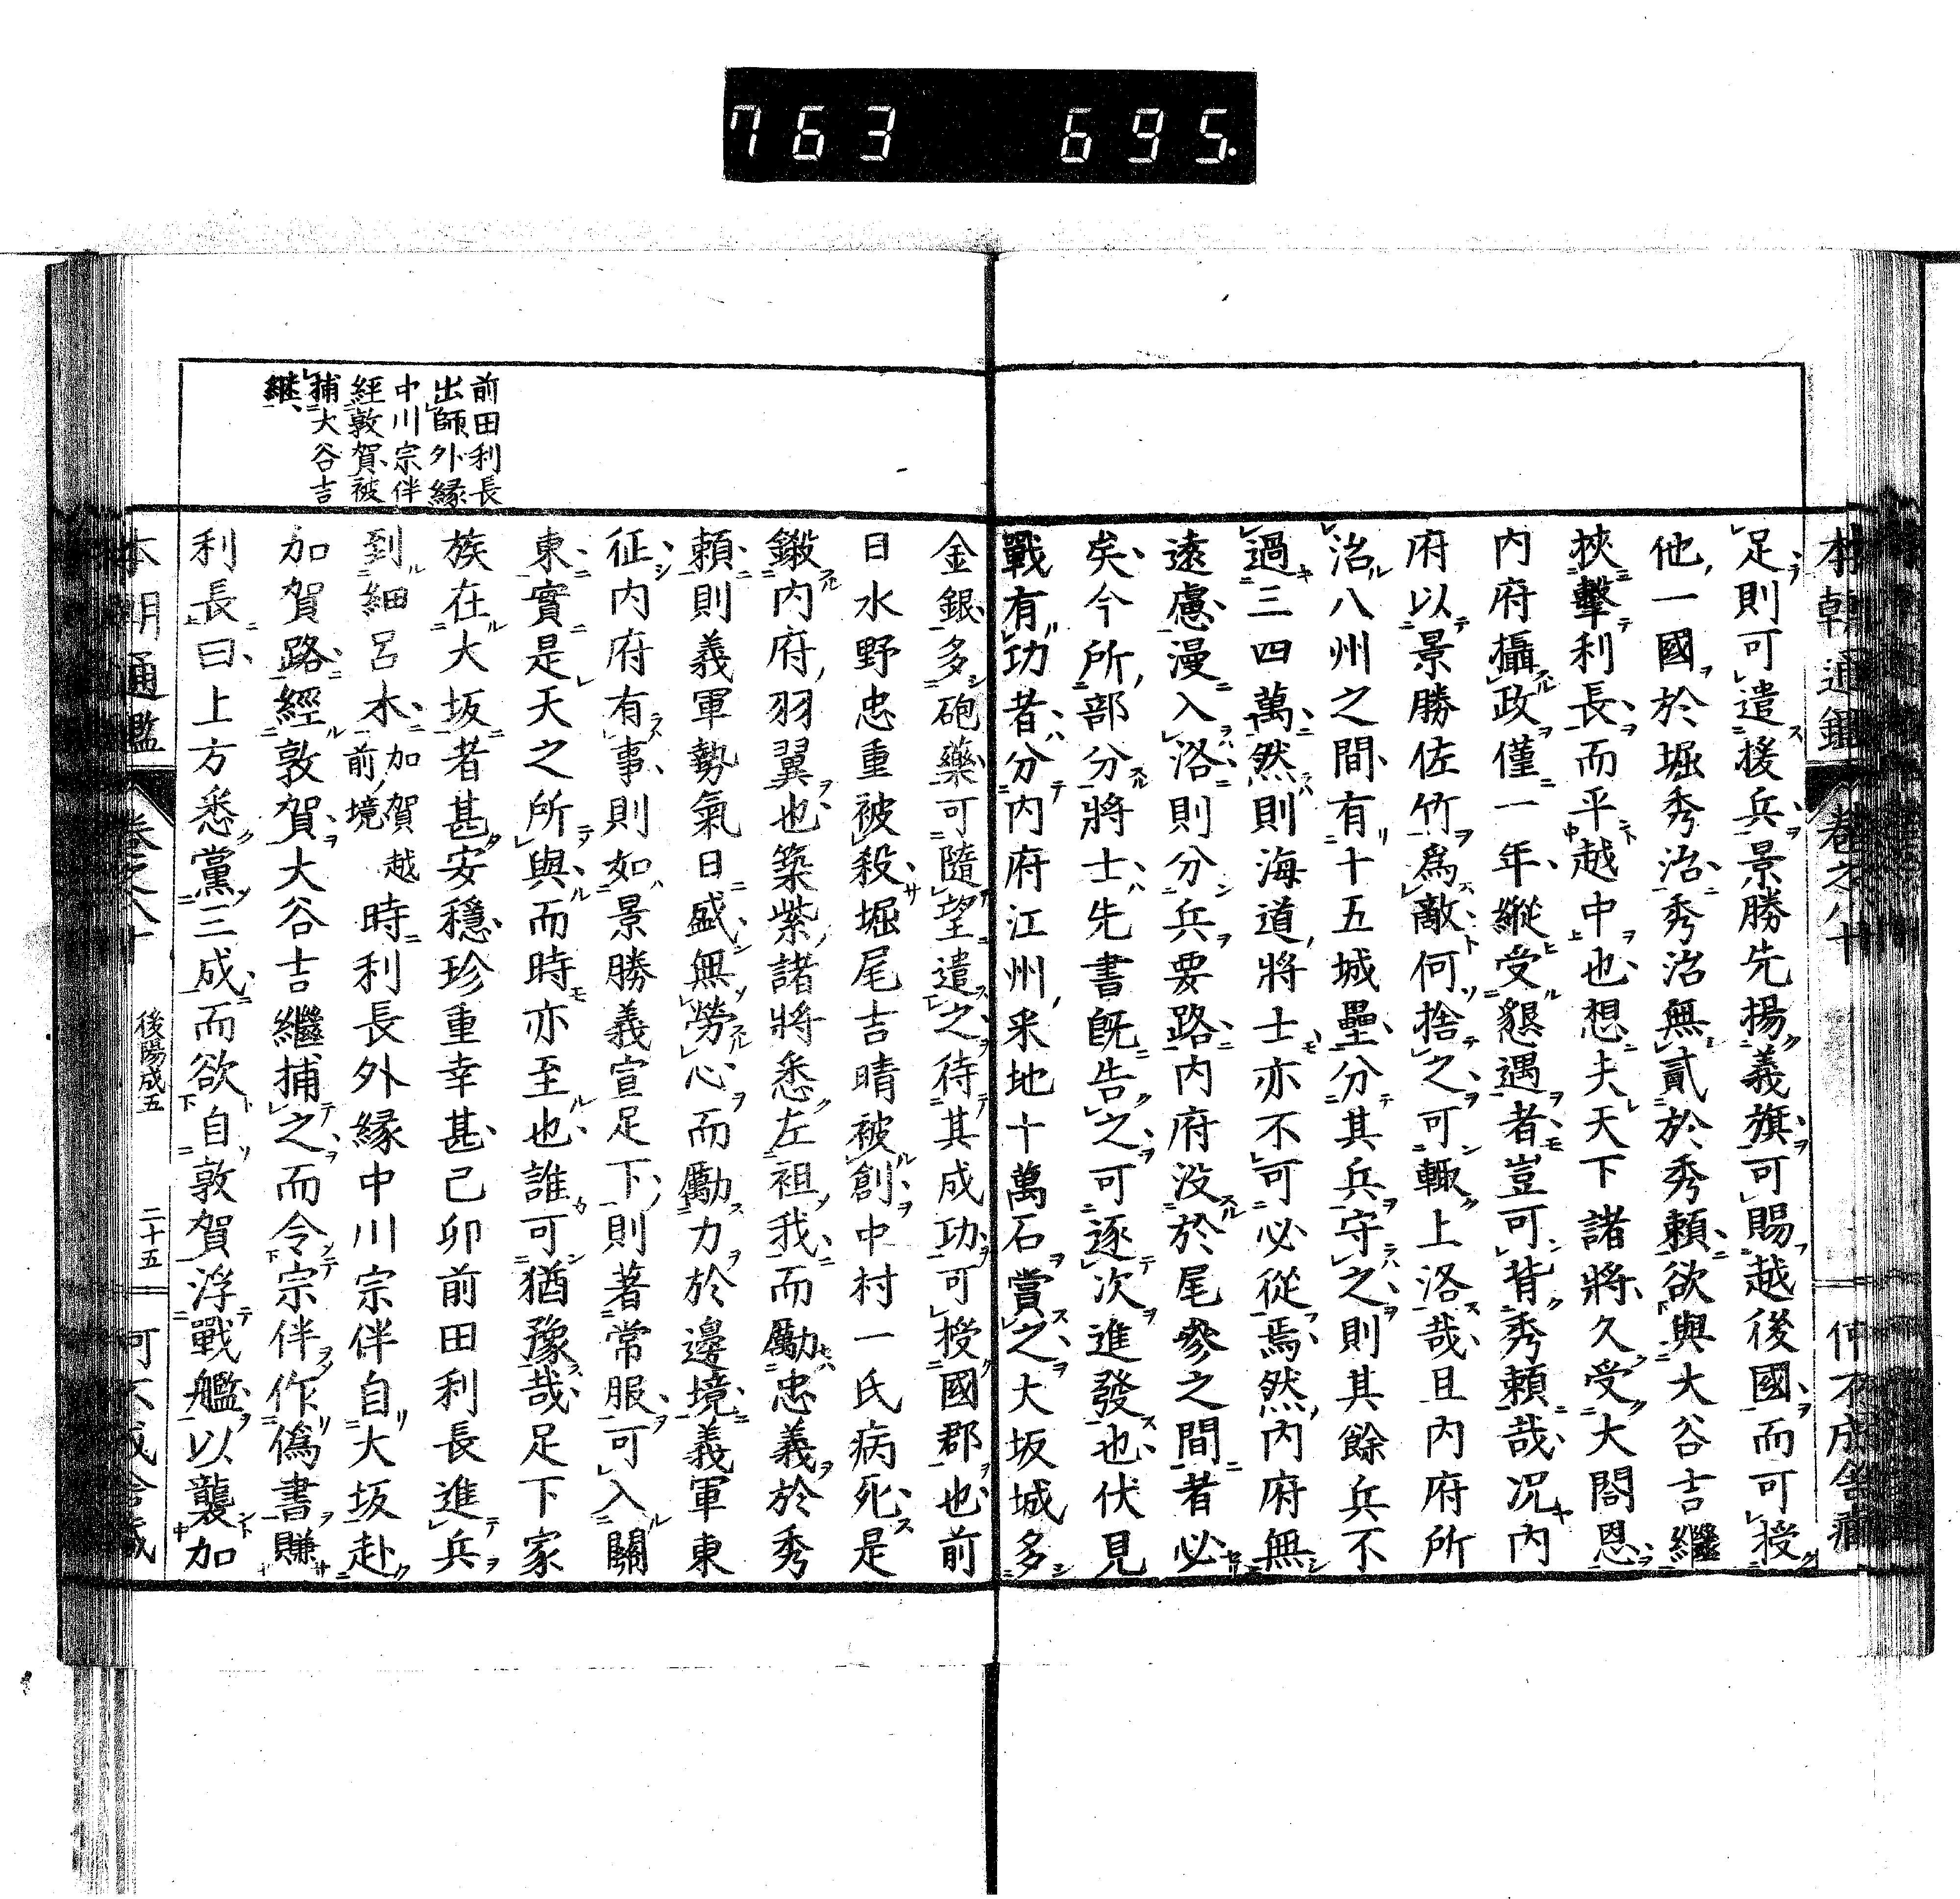 763 695.
本朝通鑑 卷之八十
足則可遣援兵景勝先揚義旗可賜越後國而可授
他一國於堀秀治秀治無貳於秀頼欲與大谷吉繼
挾擊利長而平越中也想夫天下諸將久受大閤恩
内府攝政僅一年縱受懇遇者豈可背秀頼哉况内
府以景勝佐竹爲敵何捨之可輙上洛哉且内府所
治八州之間有十五城壘分其兵守之則其餘兵不
過三四萬然則海道將士亦不可必從焉然内府無
遠慮漫入洛則分兵要路内府没於尾參之間者必
矣今所部分將士先書既告之可逐次進發也伏見
戰有功者分内府江州釆地十萬石賞之大坂城多
金銀多砲藥可隨望遣之待其成功可授國郡也前
日水野忠重被殺堀尾吉晴被創中村一氏病死是
鍛内府羽翼也築紫諸將悉左袒我而勵忠義於秀
頼則義軍勢氣日盛無勞心而勵力於邊境義軍東
征内府有事則如景勝義宣足下則著常服可入關
東實是天之所與而時亦至也誰可猶豫哉足下家
族在大坂者甚安穩珍重幸甚己卯前田利長進兵
到細呂木加賀越前境時利長外縁中川宗伴自大坂赴
加賀路經敦賀大谷吉繼捕之而令宗伴作僞書賺
利長曰上方悉黨三成而欲自敦賀浮戰艦以襲加
前田利長
出師外縁
中川宗伴
經敦賀被
捕大谷吉
継
本朝通鑑 卷之八十 後陽成五 二十五